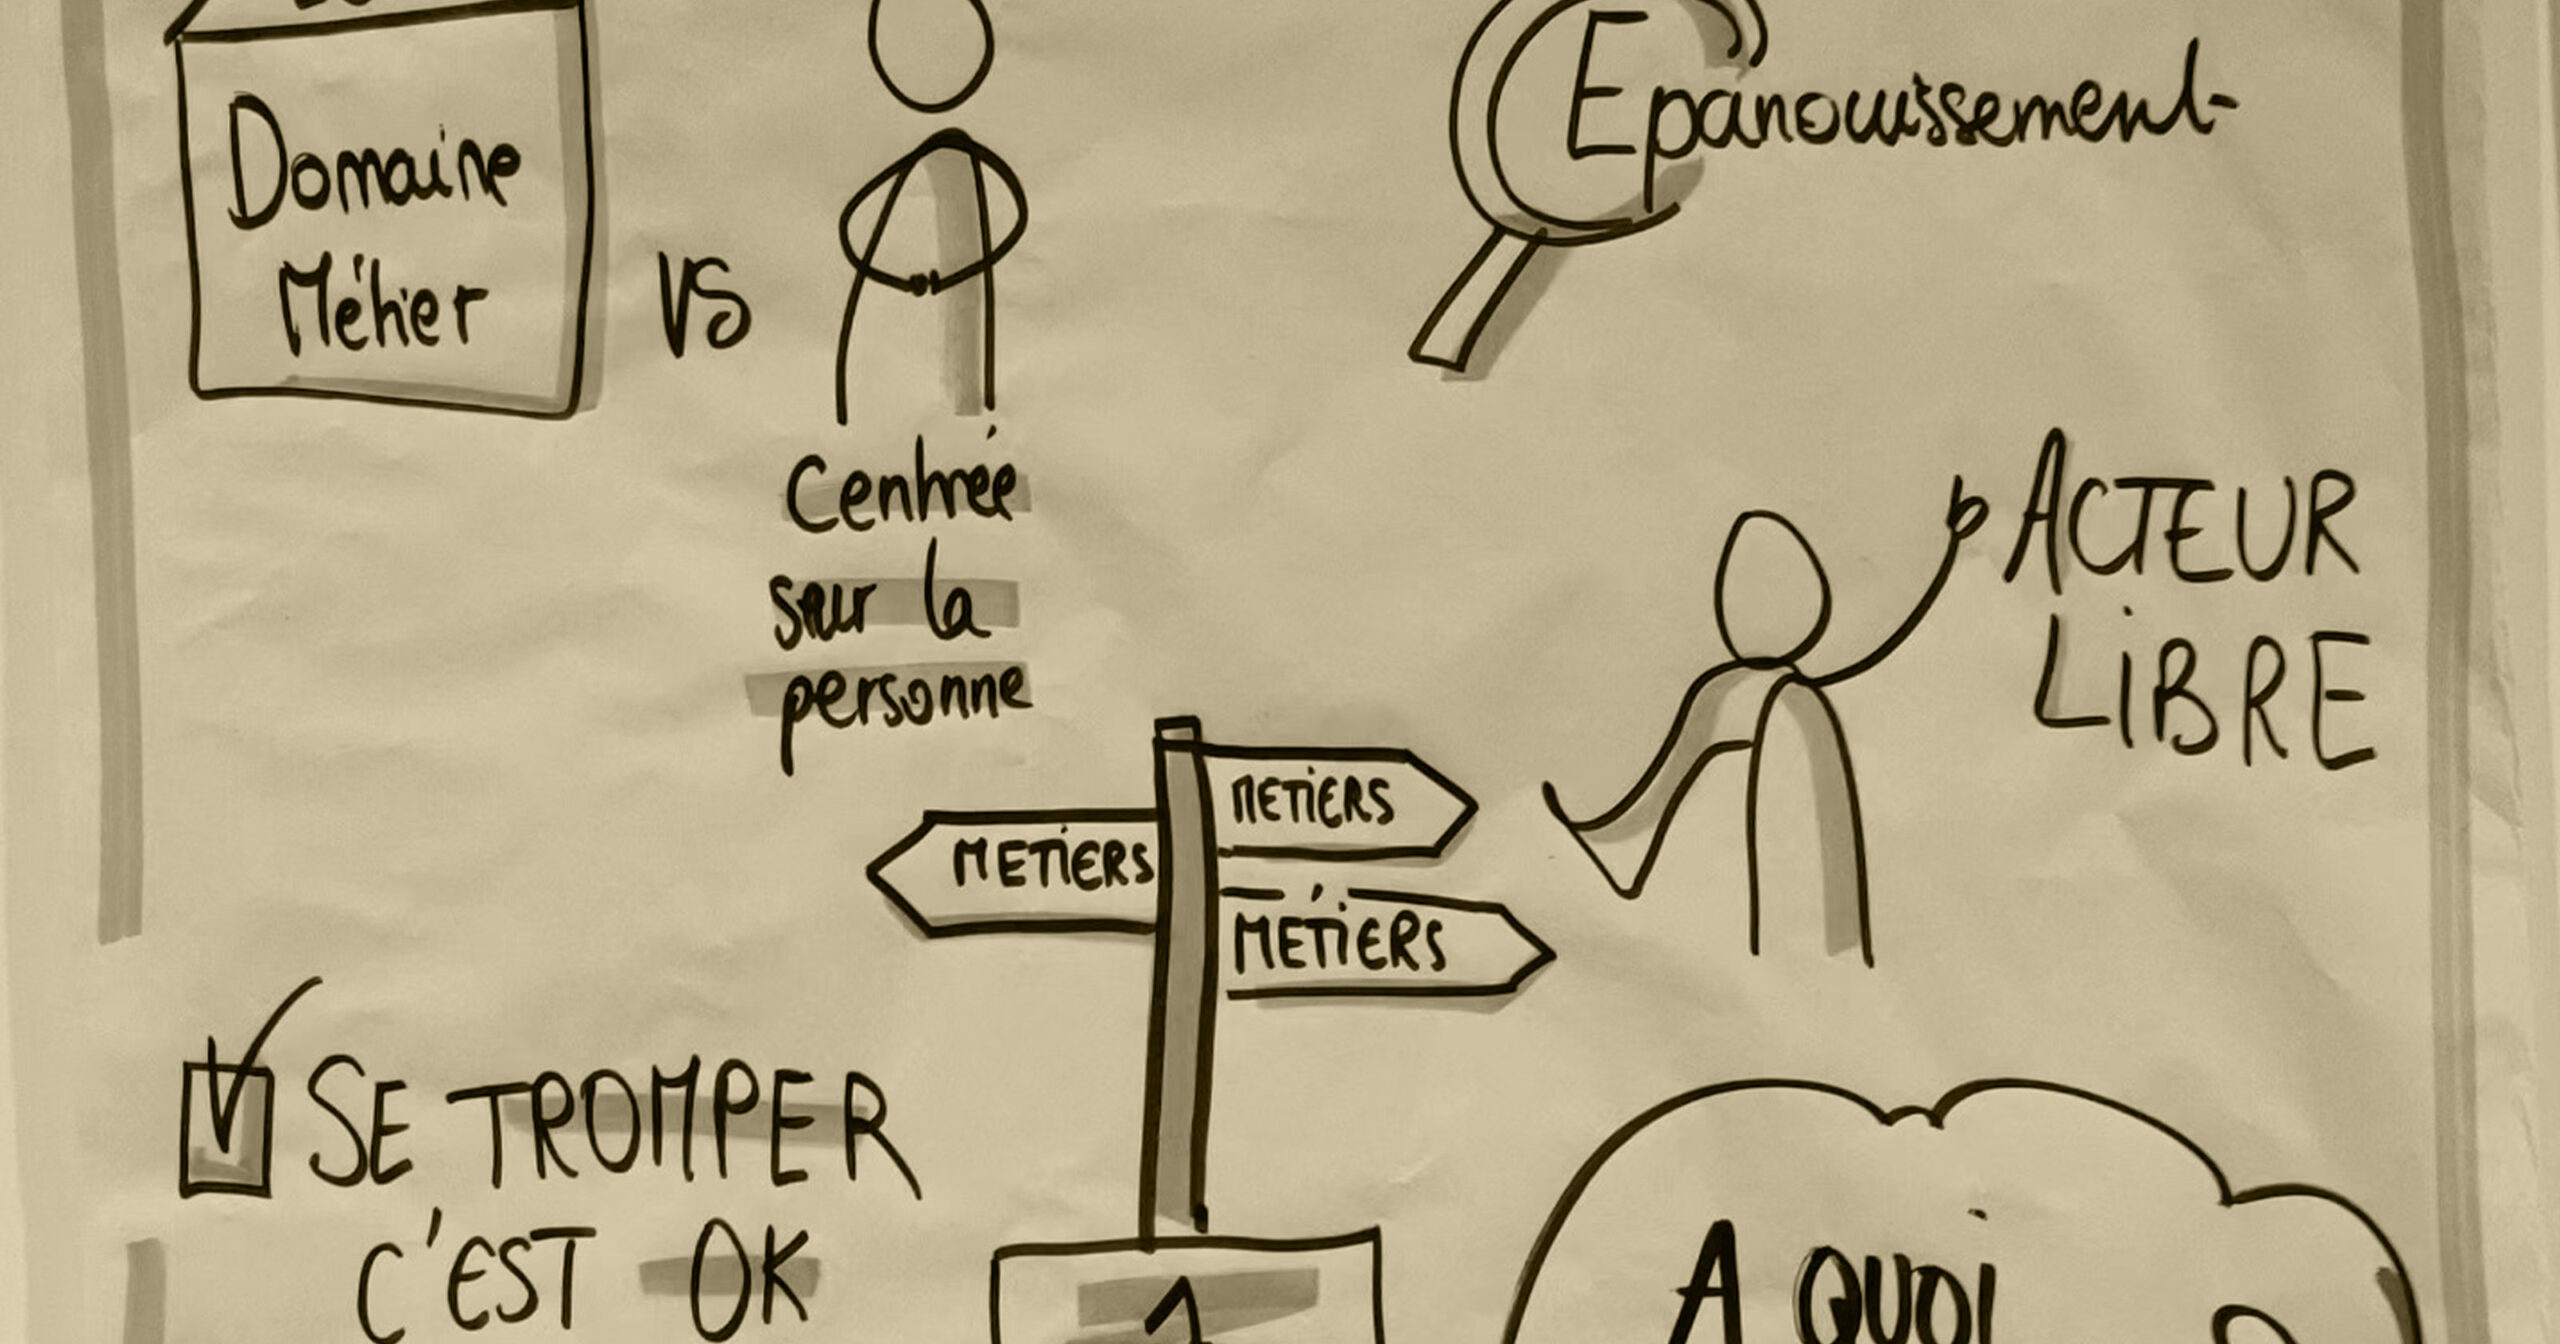 Domaine
Métier
VS
Centrée
sur la
personne
Epanouissement
ACTEUR
LIBRE
METIERS
METIERS
MÉTIERS
SE TROMPER
C'EST OK
1
A QUOI